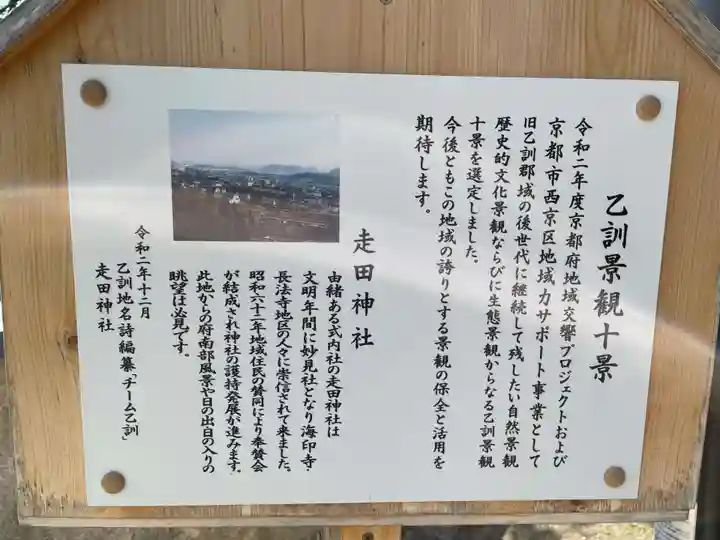 乙訓景観十景
令和二年度京都府地域交響プロジェクトおよび
京都市西京区地域力サポート事業として
旧乙訓郡域の後世代に継続して残したい自然景観
歴史的文化景観ならびに生態景観からなる乙訓景観
十景を選定しました。
今後ともこの地域の誇りとする景観の保全と活用を
期待します。
走田神社
由緒ある式内社の走田神社は
文明年間に妙見社となり海印寺・
長法寺地区の人々に崇信されて来ました。
昭和六十二年地域住民の賛同により奉賛会
が結成され神社の護持発展が進みます。
此地からの府南部風景や日の出日の入りの
眺望は必見です。
令和二年十二月
乙訓地名詩編纂「チーム乙訓」
走田神社